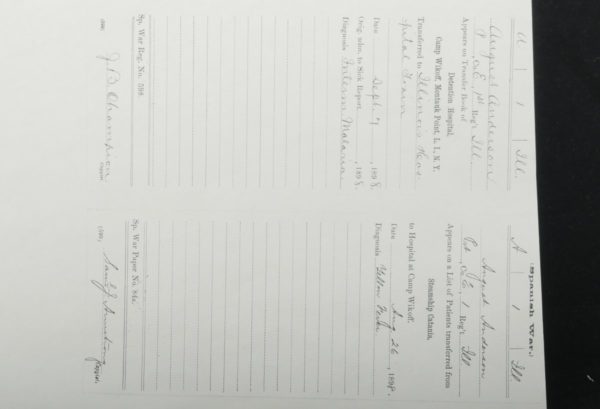 A | 1 | Ill.
August Anderson
P, Co. E, 1st Reg't Ill.
Appears on Transfer Book of
Detention Hospital,
Camp Wikoff, Montauk Point, L. I., N. Y.
Transferred to Illinois Hos-
pital Train
Date Sept. 7, 1898.
Orig. adm. to Sick Report, , 189
Diagnosis Interm Malaria
Sp. War Reg. No. 598
J. B. Champion
Copyist.
(Spanish War.)
A | 1 | Ill
August Anderson
Pvt, Co. E, 1 Reg't Ill
Appears on a List of Patients transferred from
Steamship Catania,
to Hospital at Camp Wikoff.
Date Aug 26, 1898.
Diagnosis Yellow Fever
Sp. War Paper No. 84c
Saml J. Armstrong
Copyist.